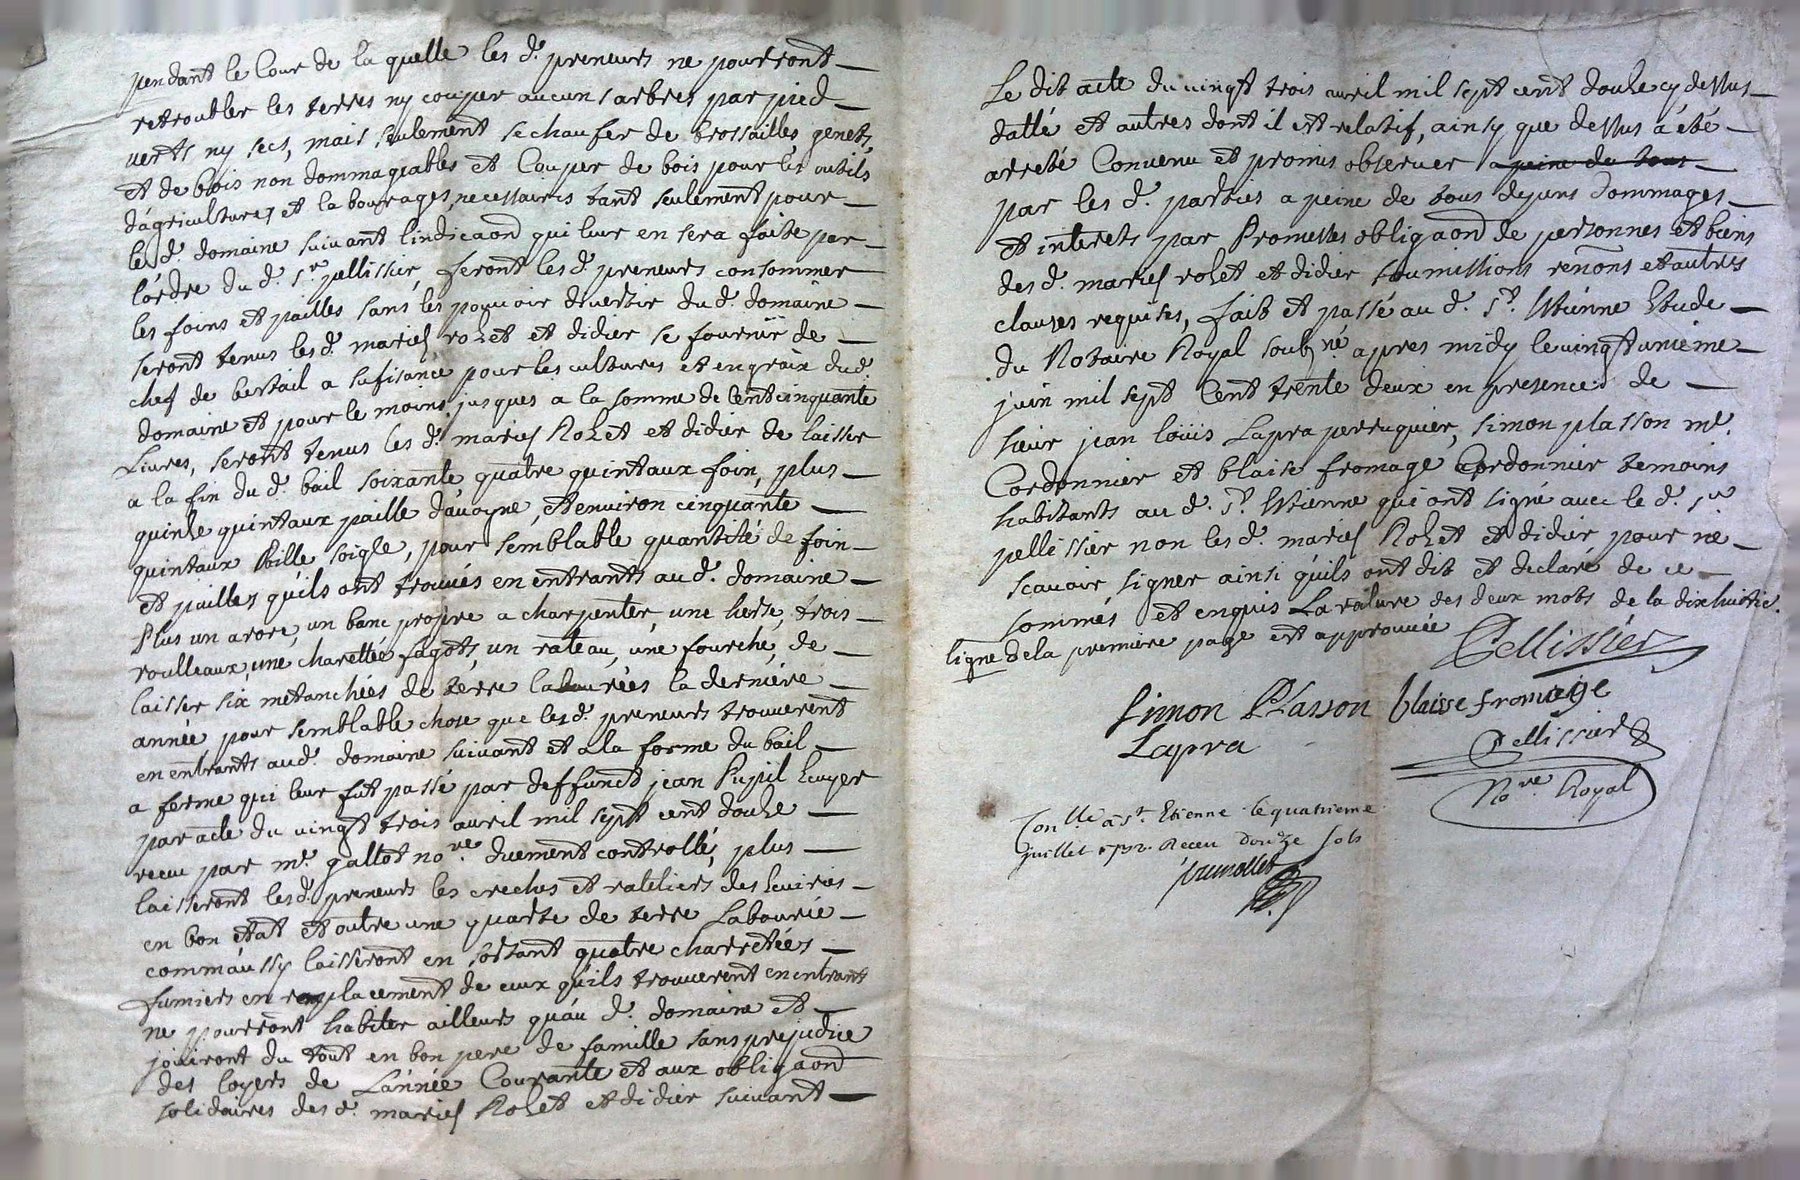 pendant le Cour de la quelle les d. preneurs ne pourront
retroubler les terres ny couper aucuns arbres par pied
verts ny secs, mais seulement se chaufer de brossailles genets,
et de bois non dommageables et Couper de bois pour les outils
d'agricultures et labourages, necessaires tant seulement pour
le d. domaine suivant l'indicaon qui leur en sera faite par
l'ordre du d. sr pellissier, feront les d. preneurs consommer
les foins et pailles sans les pouvoir divertir du d. domaine
seront tenus les d. mariés rozet et didier se fournir de
chef de bestail a sufisance pour les cultures et engraix dud.
domaine et pour le moins jusques a la somme de Cent cinquante
Livres, seront tenus les d. mariés Rozet et didier de laisser
a la fin du d. bail soixante quatre quintaux foin, plus
quinze quintaux paille d'avoyne, et environ cinquante
quintaux Paille soigle, pour semblable quantité de foin
et pailles qu'ils ont trouvés en entrants au d. domaine
Plus un arore, un banc propre a charpenter, une herse, trois
roulleaux, une charettée fagots, un rateau, une fourche, de
laisser six metanchées de terre labourées la derniere
année pour semblable chose que les d. preneurs trouverent
en entrants aud. domaine suivant et a la forme du bail
a ferme qui leur fut passé par deffunct jean Pupil Ecuyer
par acte du vingt trois avril mil sept cent douze
receu par me. gallot nore. duement controllé, plus
laisseront lesd. preneurs les creches et rateliers des Ecuries
en bon etat et outre une quarte de terre Labourée
comm'aussy laisseront en sortant quatre charretées
fumiers en remplacement de ceux qu'ils trouverent en entrants
ne pourront habiter ailleurs qu'au d. domaine et
jouiront du tout en bon pere de famille sans prejudice
des loyers de L'année Courante et aux obligaons
solidaires des d. mariés Rozet et didier suivant
Le dit acte du vingt trois avril mil sept cent douze cy dessus
datté et autres dont il est relatif, ainsy que dessus a été
arreté Convenu et promis observer a peine de tous
par les d. parties a peine de tous depens dommages
et interets par Promesses obligaons de personnes et biens
des d. mariés rozet et didier soumissions renons et autres
clauses requises, fait et passé au d. St. Etienne Etude
du Notaire Royal soubzné apres midy le vingt unieme
juin mil sept Cent trente deux en presence de
sieur jean loüis Lapra perruquier, simon plasson me.
Cordonnier et blaise fromage Cordonnier temoins
habitants au d. St. Etienne qui ont signé avec le d. sr
pellissier non les d. mariés Rozet et didier pour ne
scavoir signer ainsi qu'ils ont dit et declaré de ce
sommés et enquis La rature des deux mots de la dixhuitie.
ligne de la premiere page est approuvée
Pellissier
Simon Plasson blaise fromage
Lapra
Pellissier
Nore Royal
Conllé a St. Etienne le quatrieme
juillet 1732. Receu douze sols